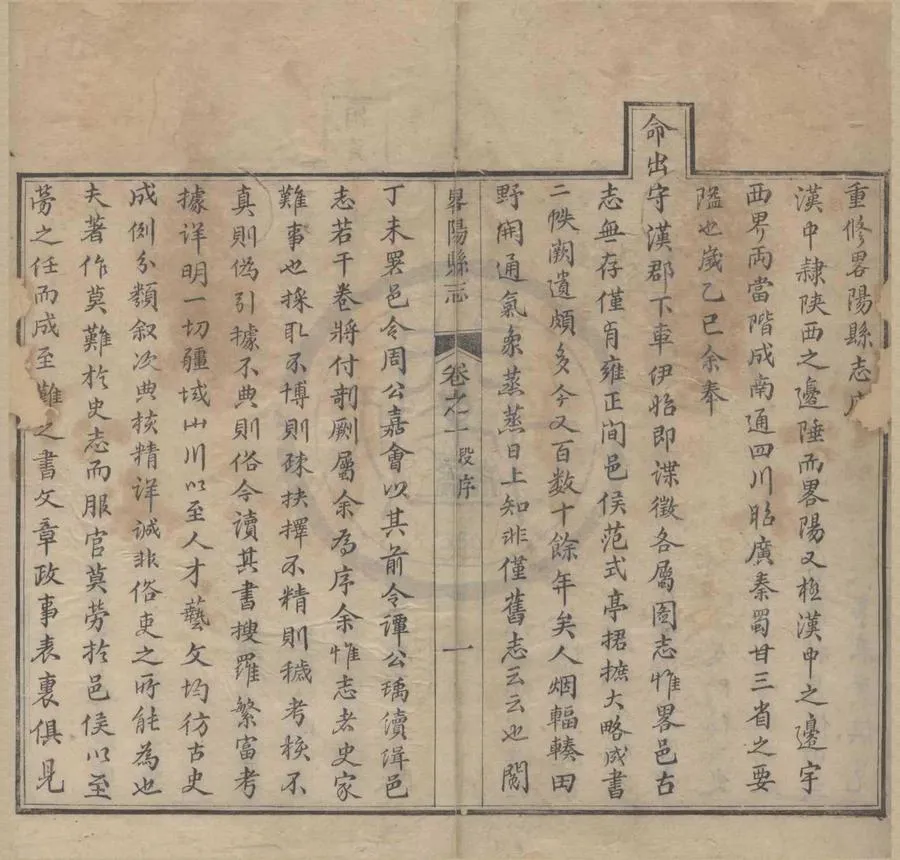 重修畧陽縣志序
漢中隷陕西之邉陲而畧陽又極漢中之邉宇
西界両當階成南通四川昭廣秦蜀甘三省之要
隘也歲乙巳余奉
命出守漢郡下車伊始即諜徵各屬圖志惟畧邑古
志無存僅肎雍正间邑侯范式亭捃摭大略成書
二帙阙遺頗多今又百数十餘年矣人烟輻輳田
野開通氣象蒸蒸日上知非僅舊志云云也閼
畧陽縣志
卷之一 段序
一
丁未署邑令周公嘉會以其前令谭公瑀續修邑
志若干卷將付剞劂屬余為序余惟志者史家
難事也採取不博則疎抉擇不精則穢考核不
真則偽引據不典則俗今讀其書搜羅繁富考
據详明一切疆域山川以至人才藝文均彷古史
成例分類叙次典核精详诚非俗吏之所能為也
夫著作莫難於史志而服官莫劳於邑侯以至
劳之任而成至難之書文章政事表裏俱見